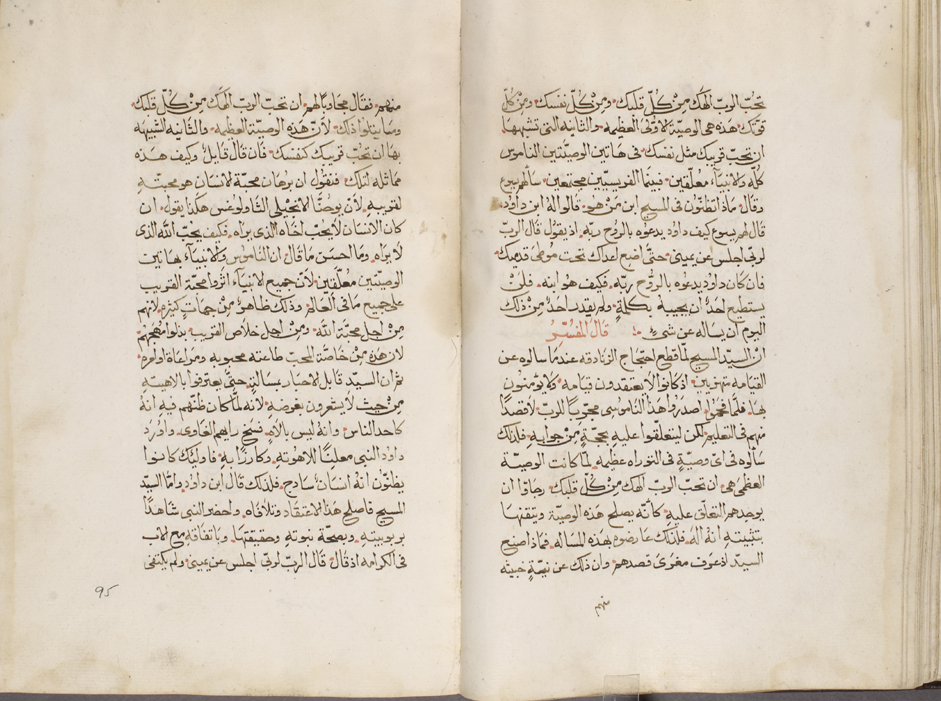 تحب الرب الهك من كل قلبك ومن كل نفسك ومن كل
قوتك هذه هى الوصية الاولى العظيمه والثانيه التى تشبهها
ان تحب قريبك مثل نفسك فى هاتين الوصيتين الناموس
كله والانبيآء معلقين فبينما الفريسيين مجتمعين سألهم يسوع
وقال ماذا تظنون فى المسيح ابن من هو قالوا له ابن داود
قال لهم يسوع كيف داود يدعوه بالروح ربه اذ يقول قال الرب
لربى اجلس عن يمينى حتى اضع اعداك تحت موطى قدميك
فان كان داود يدعوه بالروح ربه فكيف هو ابنه فلم
يستطيع احدًا ان يجيبه بكلمة ولم يقدر احد من ذلك
اليوم ان يساله عن شى قال المفسر
ان السيد المسيح لما قطع احتجاج الزنادقه عندما سالوه عن
القيامه متهزيين اذ كانوا لا يعتقدون قيامه ولا يومنون
بها فلما فحموا اصدروا هذا الناموسى مجربًا للرب لا قصدًا
منهم فى التعليم لكن ليتعلقوا عليه بحجة من جوابه فلذلك
سألوه فى اى وصية فى التوراه عظيمه لما كانت الوصية
العظمى هى ان تحب الرب الهك من كل قلبك رجاوا ان
يوجدهم التعلق عليه كأنه يصلح هذه الوصية ويتقنها
بتثبيته انه اله فلذلك عارضوه بهذه المساله فماذا صنع
السيد اذ عرف مغزى قصدهم وان ذلك عن نية خبيثه
منهم
منهم فقال مجاوبًا لهم ان تحب الرب الهك من كل قلبك
وما يتلوا ذلك لأن هذه الوصية العظيمه والثانيه الشبيهه
بها ان تحب قريبك كنفسك فان قال قايل وكيف هذه
مماثله لتلك فنقول ان برهان محبة الانسان هو محبته
لقريبه لان يوحنا الانجيلى الثاولوغس هكذا يقول ان
كان الانسان لا يحب اخاه الذى يراه فكيف يحب الله الذى
لا يراه وما احسن ما قال ان الناموس والانبيآء بهاتين
الوصيتين معلقين لأن جميع الانبيآء اثروا محبة القريب
على جميع ما فى العالم وذلك ظاهر من جهات كثيره لانهم
من اجل محبة الله ومن اجل خلاص القريب بذلوا مهجهم
لان هذه من خاصة المحب طاعته محبوبه ومراعاة اوامره
ثم ان السيد قابل الاحبار بمسالته حتى يعترفوا بالاهيته
من حيث لا يشعرون بغرضه لأنه لما كان ظنهم فيه انه
كاحد الناس وانه ليس بالاه نسخ رايهم الغاوى واورد
داود النبى معلنًا للاهوته وكارزًا به فاوليك كانوا
يظنون انه انسان ساذج فلذلك قال ابن داود واما السيد
المسيح فاصلح هذا الاعتقاد وتلافاه واحضر النبى شاهدًا
بربوبيته وبصحة نبوته وحقيقتها وباتفاقه مع الاب
فى الكرامه اذ قال قال الرب لربى اجلس عن يمينى ولم يكتفى
95